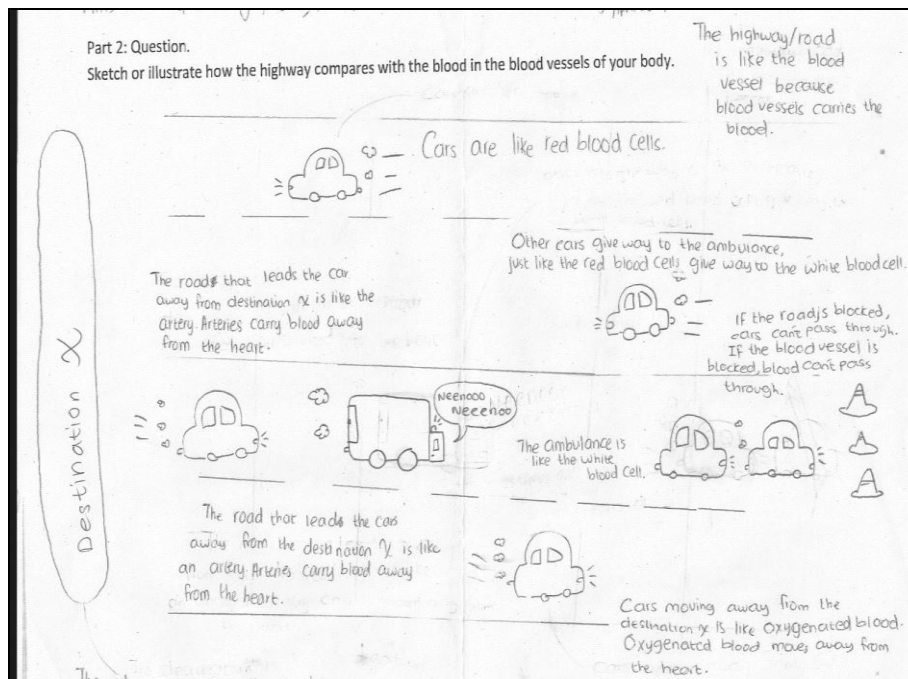 Part 2: Question.
Sketch or illustrate how the highway compares with the blood in the blood vessels of your body.
The highway/road
is like the blood
vessel because
blood vessels carries the
blood.
Cars are like red blood cells.
Other cars give way to the ambulance,
just like the red blood cells give way to the white blood cell.
The roads that leads the car
away from destination x is like the
artery. Arteries carry blood away
from the heart.
If the road is blocked,
cars can't pass through.
If the blood vessel is
blocked, blood can't pass
through.
Destination x
Neenooo
Neeenoo
The ambulance is
like the white
blood cell.
The road that leads the cars
away from the destination x is like
an artery. Arteries carry blood away
from the heart.
Cars moving away from the
destination x is like Oxygenated blood.
Oxygenated blood moves away from
the heart.